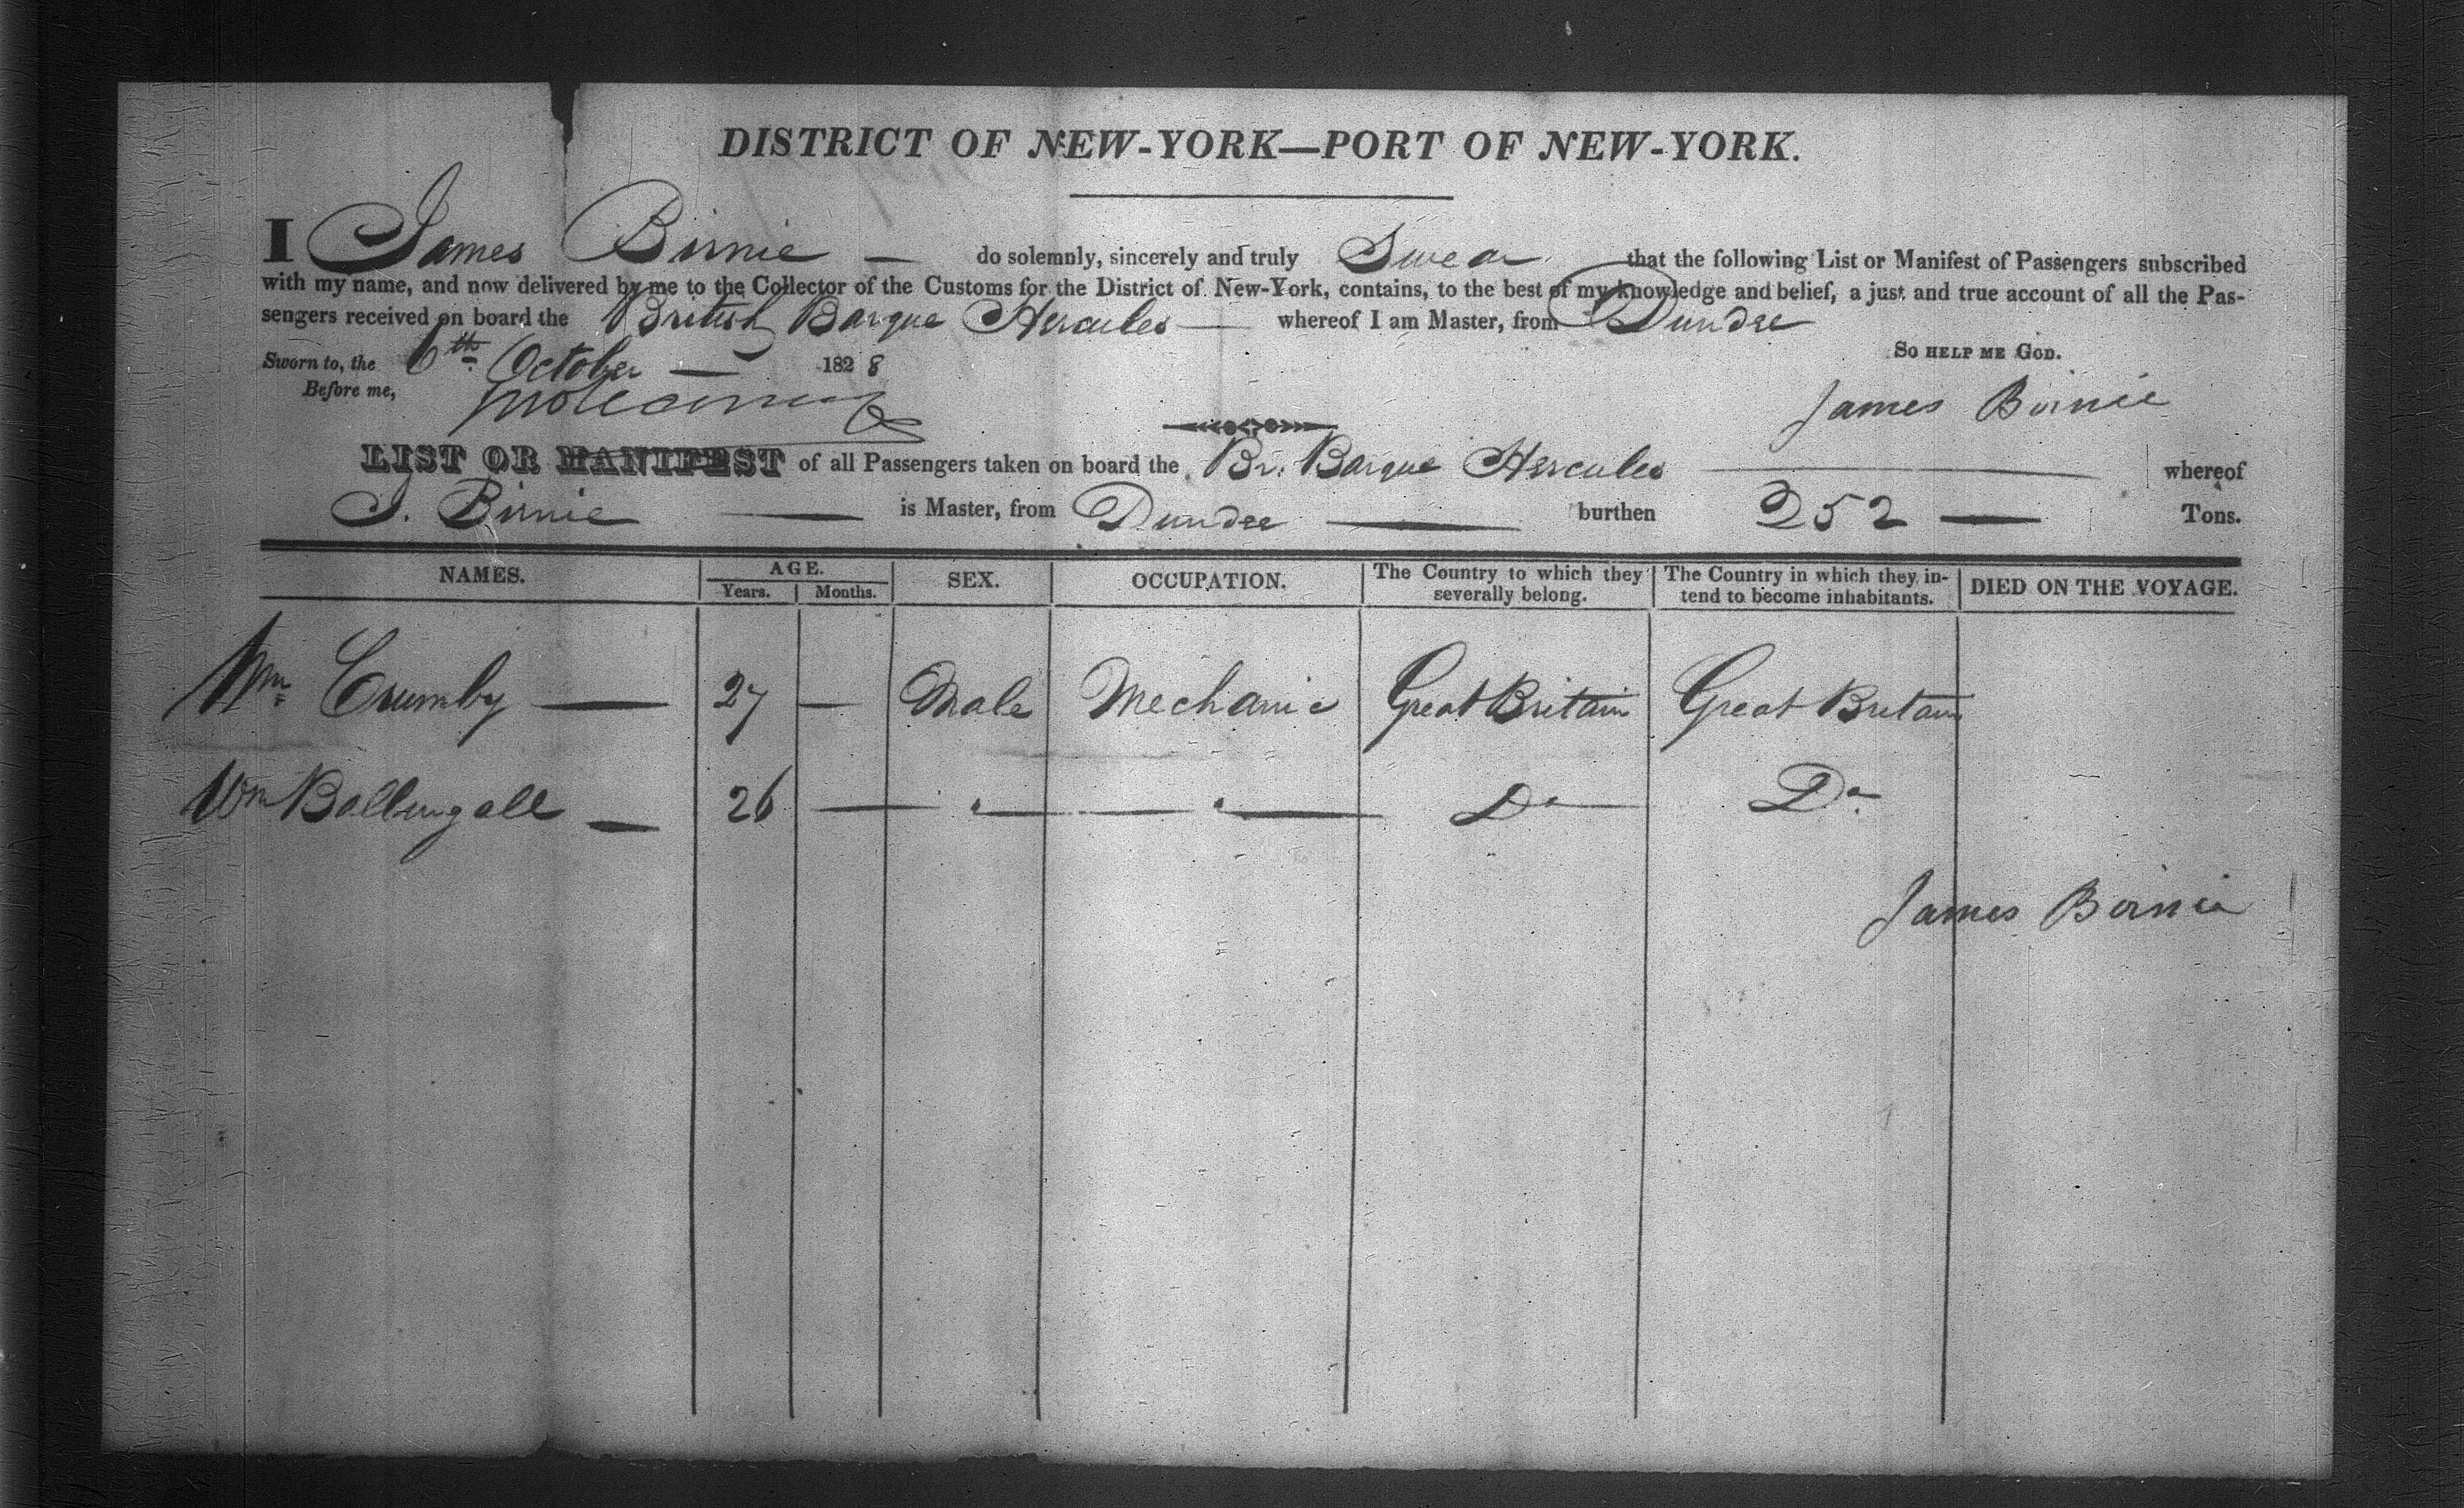 DISTRICT OF NEW-YORK—PORT OF NEW-YORK.
I James Birnie — do solemnly, sincerely and truly Swear that the following List or Manifest of Passengers subscribed
with my name, and now delivered by me to the Collector of the Customs for the District of New-York, contains, to the best of my knowledge and belief, a just and true account of all the Pas-
sengers received on board the British Barque Hercules — whereof I am Master, from Dundee
Sworn to, the 6th October — 1828 So HELP ME GOD.
Before me,
James Birnie
LIST OR MANIFEST of all Passengers taken on board the Br. Barque Hercules — whereof
J. Birnie — is Master, from Dundee — burthen 252 — Tons.
NAMES. AGE. Years. Months. SEX. OCCUPATION. The Country to which they severally belong. The Country in which they in-tend to become inhabitants. DIED ON THE VOYAGE.
Wm Crumby — 27 — Male Mechanic Great Britain Great Britain
Wm Ballingall — 26 — " — " — Do — Do
James Birnie